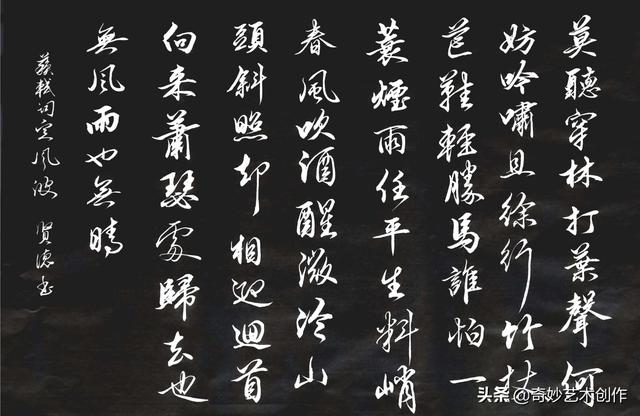 莫聽穿林打葉聲何
妨吟嘯且徐行竹杖
芒鞋輕勝馬誰怕一
蓑煙雨任平生料峭
春風吹酒醒微冷山
頭斜照却相迎迴首
向来蕭瑟處歸去也
無風雨也無晴
蘇軾词定風波 贤德书
头条 @奇妙艺术创作